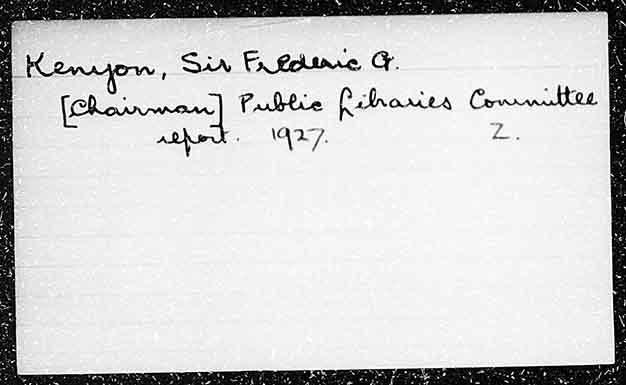 Kenyon, Sir Frederic G.
[Chairman] Public Libraries Committee
report. 1927. Z.